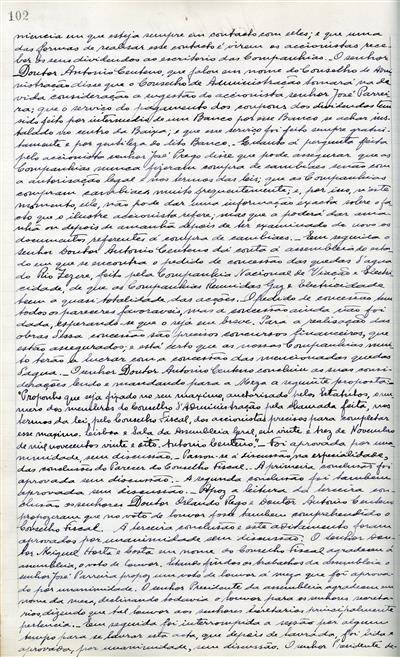 102
niencia em que esteja sempre em contacto com elles; e que uma
das formas de realisar esse contacto é virem os accionistas rece-
ber os seus dividendos ao escritorio das Companhias. - O senhor
Doutor Antonio Centeno, que falou em nome do Conselho de Admi-
nistração disse que o Conselho de Administração tomará na de-
vida consideração a sugestão do accionista senhor José Parrei-
ra; que o serviço do pagamento dos coupons dos dividendos tem
sido feito por intermedio de um Banco por esse Banco se achar ins-
talado no centro da Baixa; e que esse serviço foi feito sempre gratui-
tamente e por gentileza do dito Banco. - Quanto á pergunta feita
pelo accionista senhor José Prego disse que pode assegurar que as
Companhias nunca fizeram compra de cambiaes sem
a autorisação legal e nos termos das leis; que as Companhias
compram cambiaes muito frequentemente; e, por isso, n'este
momento, elle, não pode dar uma informação exacta sobre o fa-
cto que o ilustre accionista refere; mas que a poderá dar ama-
nhã ou depois de amanhã depois de ter examinado de novo os
documentos referentes á compra de cambiaes. - Em seguida o
senhor Doutor Antonio Centeno dá conta á assembleia do esta-
do em que se encontra o pedido de concessão das quedas d'agua
do Rio Zezere, feito pela Companhia Nacional de Viação e Electri-
cidade, de que as Companhias Reunidas Gaz e Electricidade
teem a quasi totalidade das acções. O pedido de concessão, tem
todos os pareceres favoraveis, mas a concessão ainda não foi
dada, esperando-se que o seja em breve. Para a realisação das
obras d'essa concessão são precisos concursos financeiros, que
estão assegurados; e está certo que as nossas Companhias mui-
to terão a lucrar com a concessão das mencionadas quedas
d'agua. - O senhor Doutor Antonio Centeno concluiu as suas consi-
derações lendo e mandando para a Meza a seguinte proposta: -
"Proponho que seja fixado no seu maximo, autorisado pelos Estatutos, o nu-
mero dos membros do Conselho d'Administração pela chamada feita, nos
termos da lei, pelo Conselho Fiscal, dos accionistas precisos para completar
esse maximo. Lisboa e Sala da Assembleia Geral, em vinte e tres de Novembro
de mil novecentos vinte e sete. Antonio Centeno". - Foi aprovada por una-
nimidade, sem discussão. - Passou-se á discussão, na especialidade,
das conclusões do Parecer do Conselho Fiscal. - A primeira conclusão foi
aprovada sem discussão. - A segunda conclusão foi tambem
aprovada sem discussão. - Após a leitura da terceira con-
clusão os senhores Doutor Orlando Rego e Doutor Antonio Centeno
propozeram que no voto de louvor fosse tambem comprehendido o
Conselho Fiscal. - A terceira conclusão e este aditamento foram
aprovados por unanimidade sem discussão. O senhor Dou-
tor Miguel Horta e Costa em nome do Conselho Fiscal agradeceu á
assembleia, o voto de louvor. Estando findos os trabalhos da assembleia o
senhor José Parreira propoz um voto de louvor á meza que foi aprova-
do por unanimidade. O senhor Presidente da assembleia agradeceu em
nome da meza, declinando todavia o louvor para os senhores secreta-
rios dizendo que tal louvor aos senhores secretarios principalmente
pertencia. - Em seguida foi interrompida a sessão por algum
tempo para se lavrar esta acta, que depois de lavrada, foi lida e
aprovada, por unanimidade, sem discussão. O senhor Presidente de-